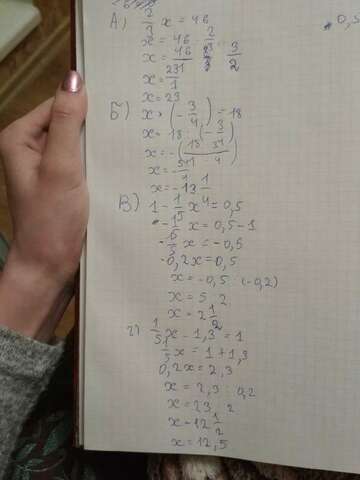 А) 2/3 x = 46
x = 46 : 2/3
x = 46/3 3/2
x = 231/1
x = 23
Б) x · (- 3/4) = 18
x = 18 : (- 3/4)
x = -
x = -13 1/4
В) 1 - 1/5 x = 0,5
- 1/5 x = 0,5 - 1
x = -0,5
-0,2x = 0,5
x = -0,5 : (-0,2)
x = 5 : 2
x = 2 1/2
г) 1/5 x - 1,3 = 1
1/5 x = 1 + 1,3
0,2x = 2,3
x = 2,3 : 0,2
x = 23 : 2
x = 12 1/2
x = 12,5